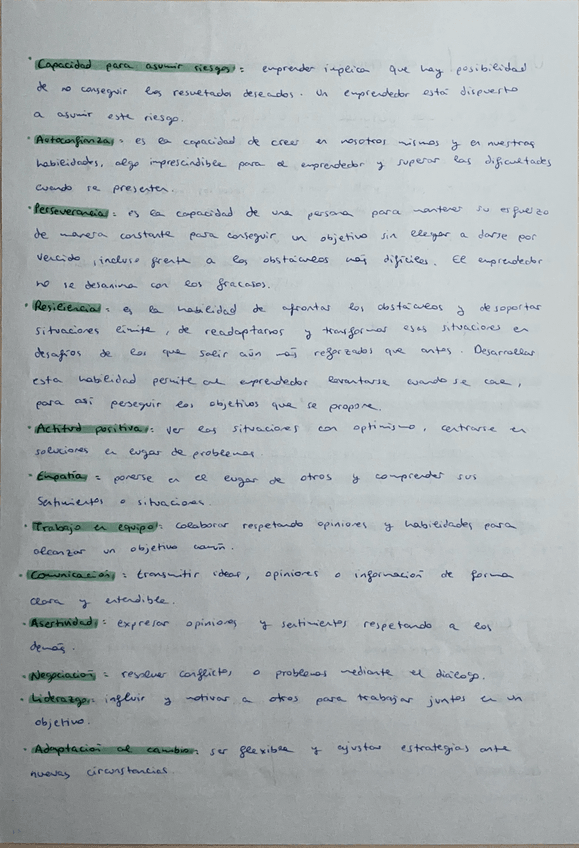 · Capacidad para asumir riesgos: emprender implica que hay posibilidad
de no conseguir los resultados deseados. Un emprendedor está dispuesto
a asumir este riesgo.
· Autoconfianza: es la capacidad de creer en nosotros mismos y en nuestras
habilidades, algo imprescindible para el emprendedor y superar las dificultades
cuando se presenten.
· Perseverancia: es la capacidad de una persona para mantener su esfuerzo
de manera constante para conseguir un objetivo sin llegar a darse por
vencido, incluso frente a los obstáculos más difíciles. El emprendedor
no se desanima con los fracasos.
· Resiliencia: es la habilidad de afrontar los obstáculos y de soportar
situaciones límite, de readaptarnos y transformar esas situaciones en
desafíos de los que salir aún más reforzados que antes. Desarrollar
esta habilidad permite al emprendedor levantarse cuando se cae,
para así perseguir los objetivos que se propone.
· Actitud positiva: ver las situaciones con optimismo, centrarse en
soluciones en lugar de problemas.
· Empatía: ponerse en el lugar de otros y comprender sus
sentimientos o situaciones.
· Trabajo en equipo: colaborar respetando opiniones y habilidades para
alcanzar un objetivo común.
· Comunicación: transmitir ideas, opiniones o información de forma
clara y entendible.
· Asertividad: expresar opiniones y sentimientos respetando a los
demás.
· Negociación: resolver conflictos o problemas mediante el diálogo.
· Liderazgo: influir y motivar a otros para trabajar juntos en un
objetivo.
· Adaptación al cambio: ser flexible y ajustar estrategias ante
nuevas circunstancias.